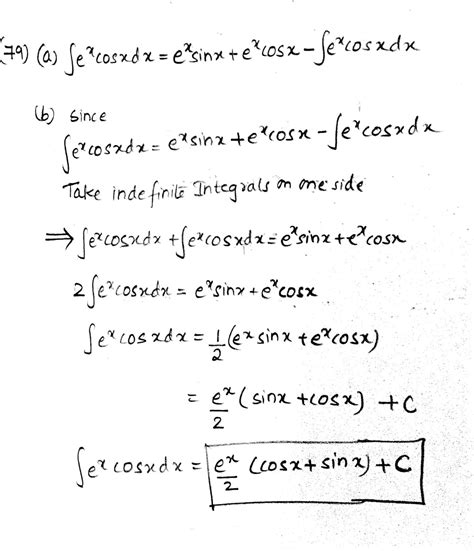 79) (a) ∫eˣcosxdx = eˣsinx + eˣcosx - ∫eˣcosxdx
(b) since
∫eˣcosxdx = eˣsinx + eˣcosx - ∫eˣcosxdx
Take indefinite Integrals on one side
⇒ ∫eˣcosxdx + ∫eˣcosxdx = eˣsinx + eˣcosx
2∫eˣcosxdx = eˣsinx + eˣcosx
∫eˣcosxdx = 1/2 (eˣsinx + eˣcosx)
= eˣ/2 (sinx + cosx) + C
∫eˣcosxdx = eˣ/2 (cosx + sinx) + C